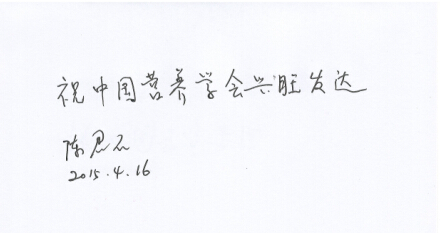 祝中国营养学会兴旺发达
陈思石
2015.4.16